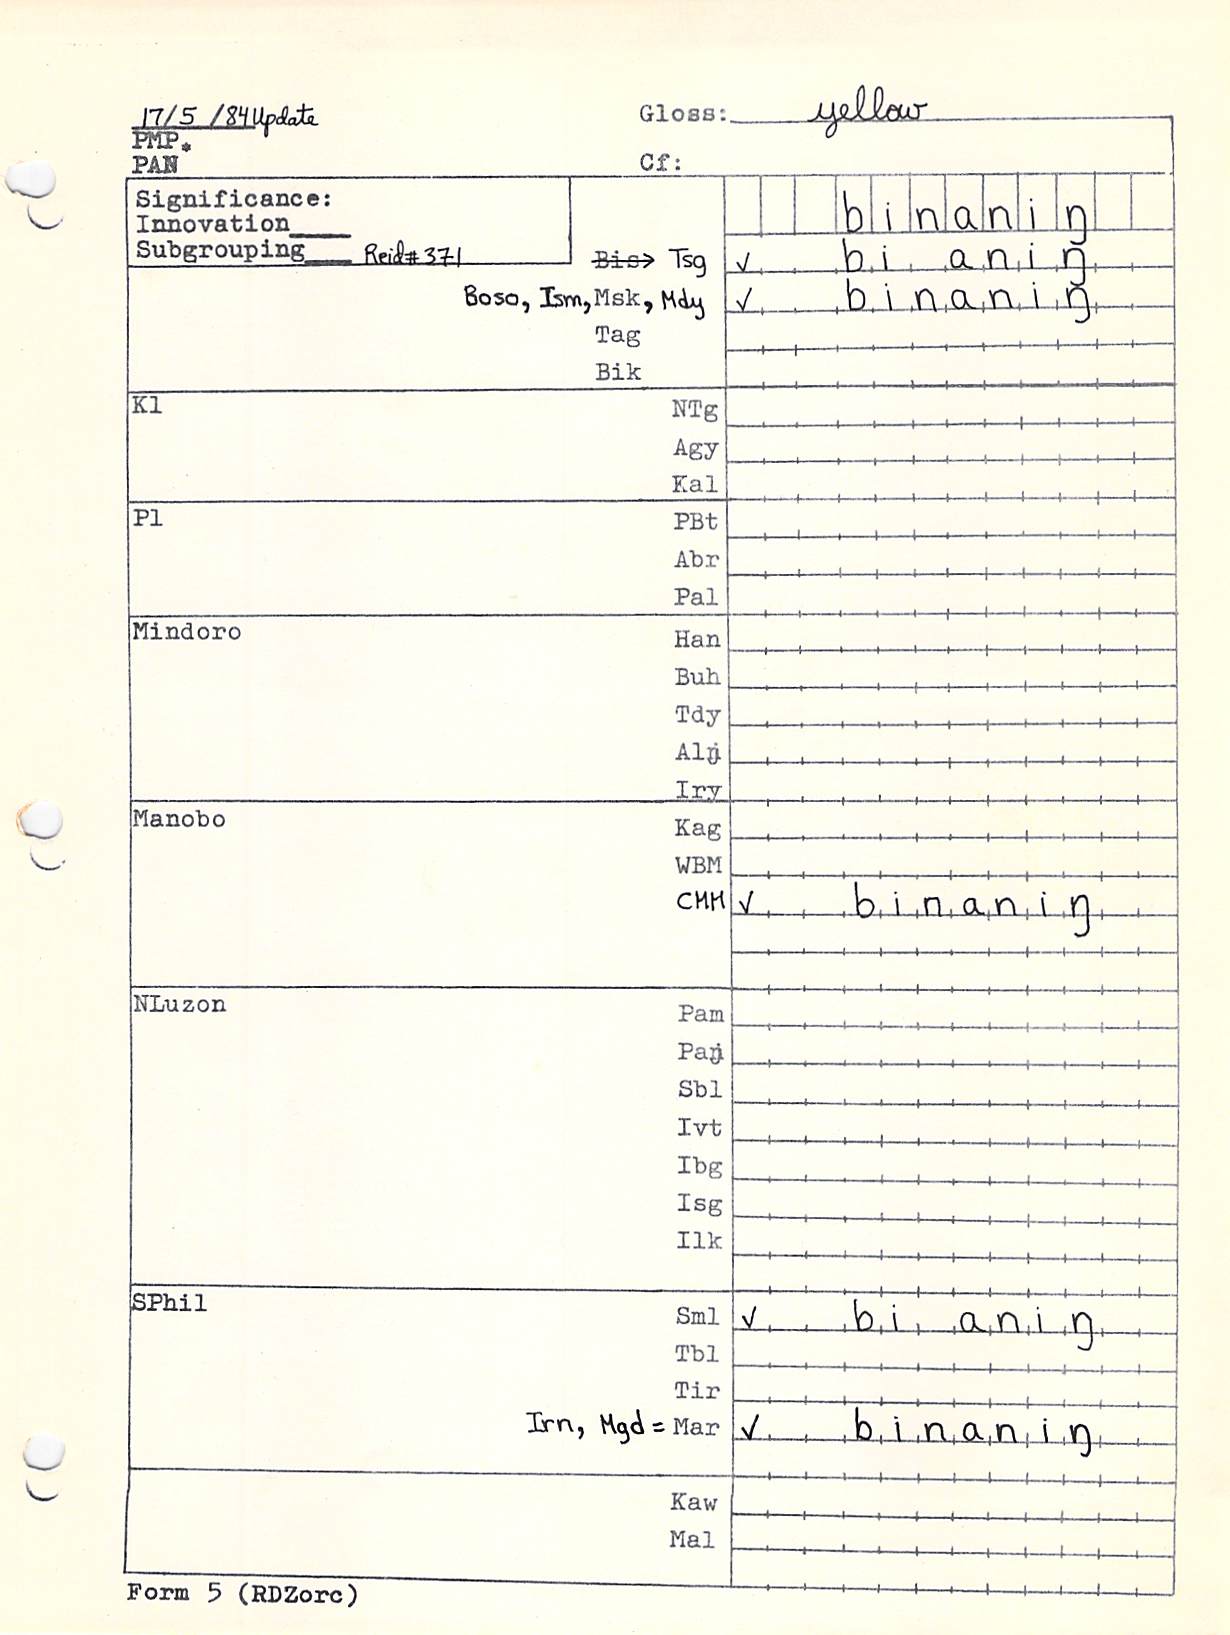 17/5 /84 Update Gloss: yellow
PMP*
PAN Cf:
Significance:
Innovation____ binaniŋ
Subgrouping____ Reid# 371 Bis> Tsg ✓ bi aniŋ
Boso, Ism, Msk, Mdy ✓ binaniŋ
Tag
Bik
Kl NTg
Agy
Kal
Pl PBt
Abr
Pal
Mindoro Han
Buh
Tdy
Alŋ
Iry
Manobo Kag
WBM
CMM ✓ binaniŋ
NLuzon Pam
Paŋ
Sbl
Ivt
Ibg
Isg
Ilk
SPhil Sml ✓ bi aniŋ
Tbl
Tir
Irn, Mgd = Mar ✓ binaniŋ
Kaw
Mal
Form 5 (RDZorc)